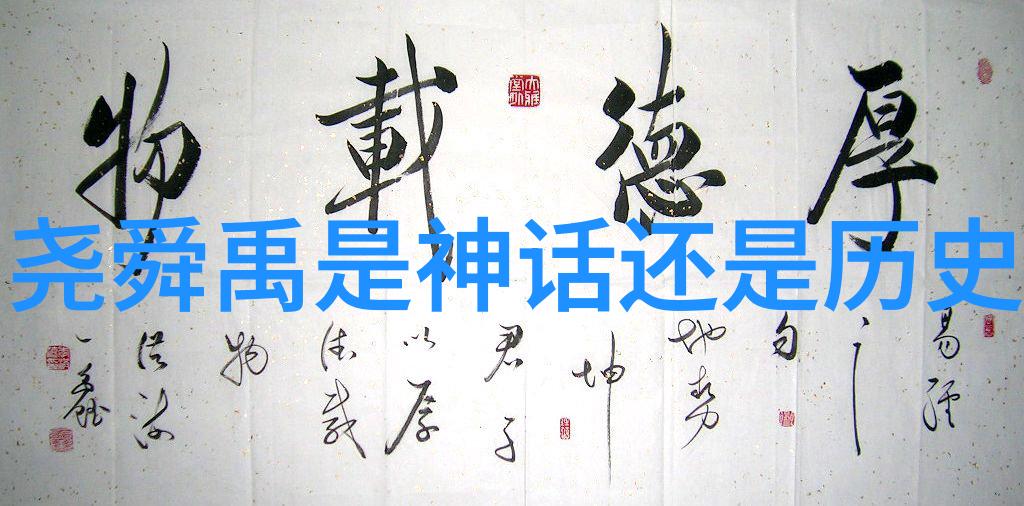 厚德載物
尧舜禹是神话还是历史
易經
之
句
地势
坤
君子
以厚
德载
物